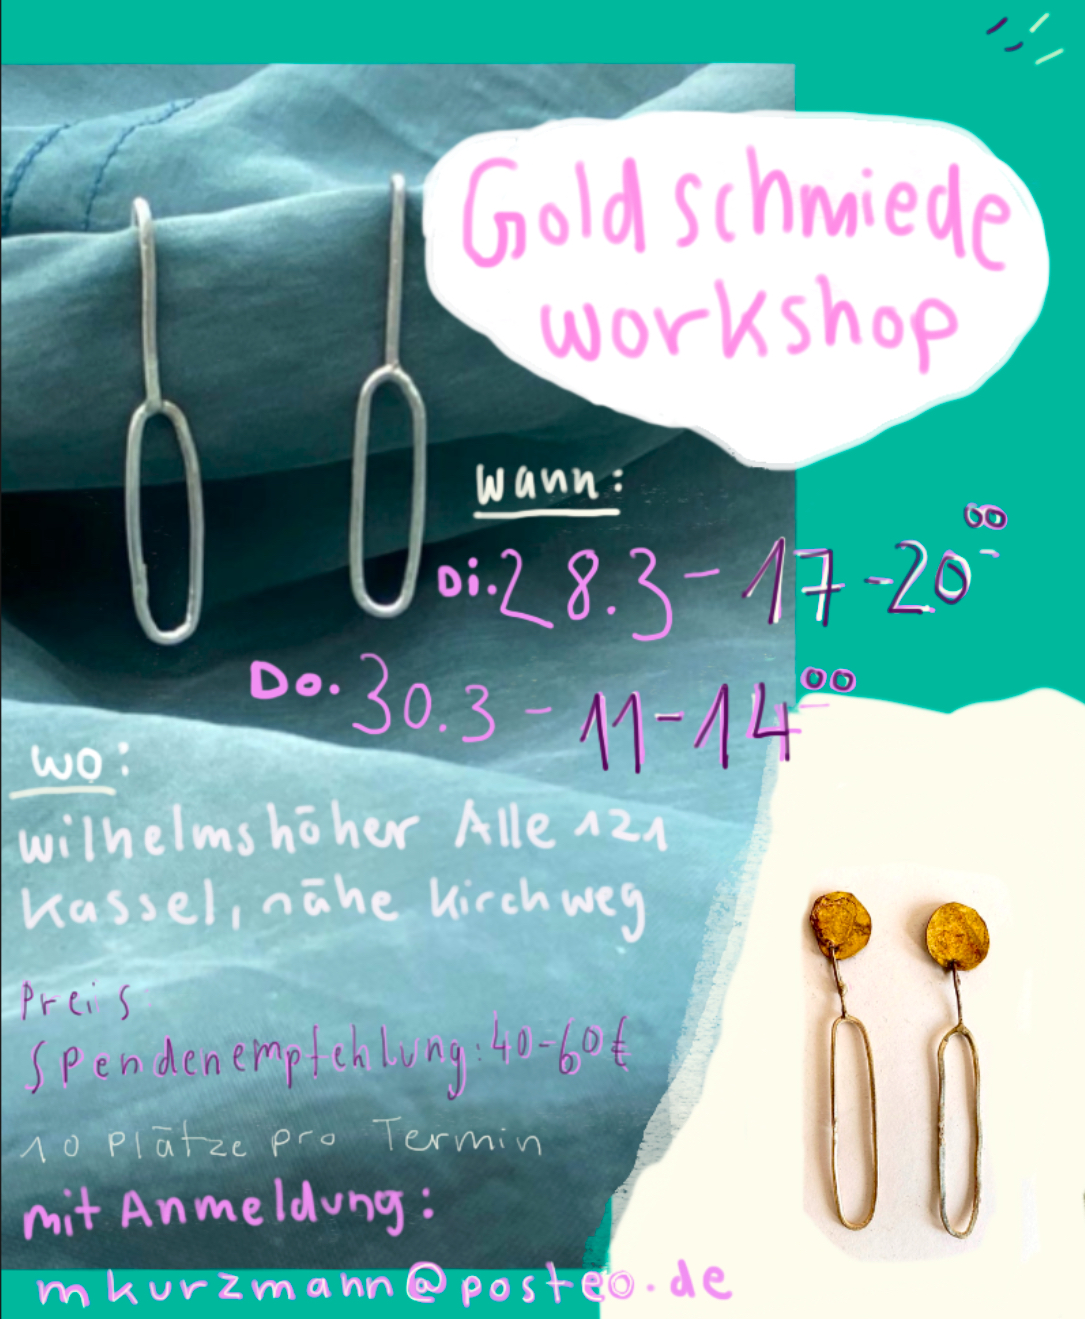 Goldschmiede
workshop
wann:
Di. 28.3 - 17-20⁰⁰
Do. 30.3 - 11-14⁰⁰
wo:
wilhelmshōher Alle 121
Kassel, nāhe Kirchweg
Preis
Spendenempfehlung: 40-60€
10 Plātze pro Termin
mit Anmeldung:
mkurzmann@posteo.de